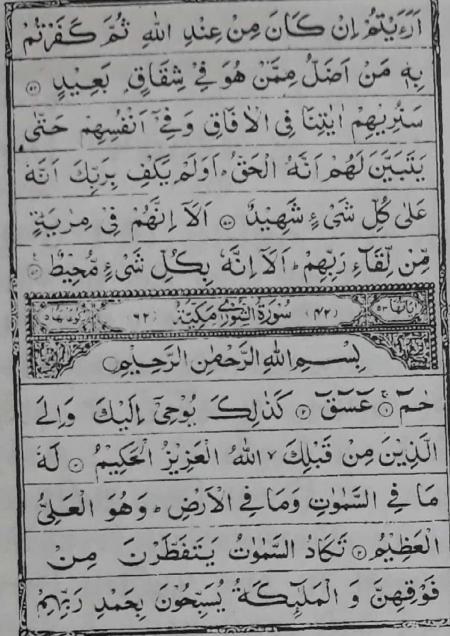 اَرَءَيْتُمْ اِنْ كَانَ مِنْ عِنْدِ اللهِ ثُمَّ كَفَرْتُمْ
بِهٖ مَنْ اَضَلُّ مِمَّنْ هُوَ فِيْ شِقَاقٍۭ بَعِيْدٍ ﴿۵۲﴾
سَنُرِيْهِمْ اٰيٰتِنَا فِى الْاٰفَاقِ وَفِيْٓ اَنْفُسِهِمْ حَتّٰى
يَتَبَيَّنَ لَهُمْ اَنَّهُ الْحَقُّ ؕ اَوَلَمْ يَكْفِ بِرَبِّكَ اَنَّهٗ
عَلٰى كُلِّ شَيْءٍ شَهِيْدٌ ﴿۵۳﴾ اَلَآ اِنَّهُمْ فِيْ مِرْيَةٍ
مِّنْ لِّقَآءِ رَبِّهِمْ ؕ اَلَآ اِنَّهٗ بِكُلِّ شَيْءٍ مُّحِيْطٌ ﴿۵۴﴾
اٰيَاتُهَا ۵۳ (۴۲) سُوْرَةُ الشُّوْرٰى مَكِّيَّةٌ (۶۲) رُكُوْعَاتُهَا ۵
بِسْمِ اللهِ الرَّحْمٰنِ الرَّحِيْمِ
حٰمٓ ﴿۱﴾ عٓسٓقٓ ﴿۲﴾ كَذٰلِكَ يُوْحِيْٓ اِلَيْكَ وَاِلَى
الَّذِيْنَ مِنْ قَبْلِكَ ۙ اللهُ الْعَزِيْزُ الْحَكِيْمُ ﴿۳﴾ لَهٗ
مَا فِى السَّمٰوٰتِ وَمَا فِى الْاَرْضِ ؕ وَهُوَ الْعَلِيُّ
الْعَظِيْمُ ﴿۴﴾ تَكَادُ السَّمٰوٰتُ يَتَفَطَّرْنَ مِنْ
فَوْقِهِنَّ وَ الْمَلٰٓئِكَةُ يُسَبِّحُوْنَ بِحَمْدِ رَبِّهِمْ